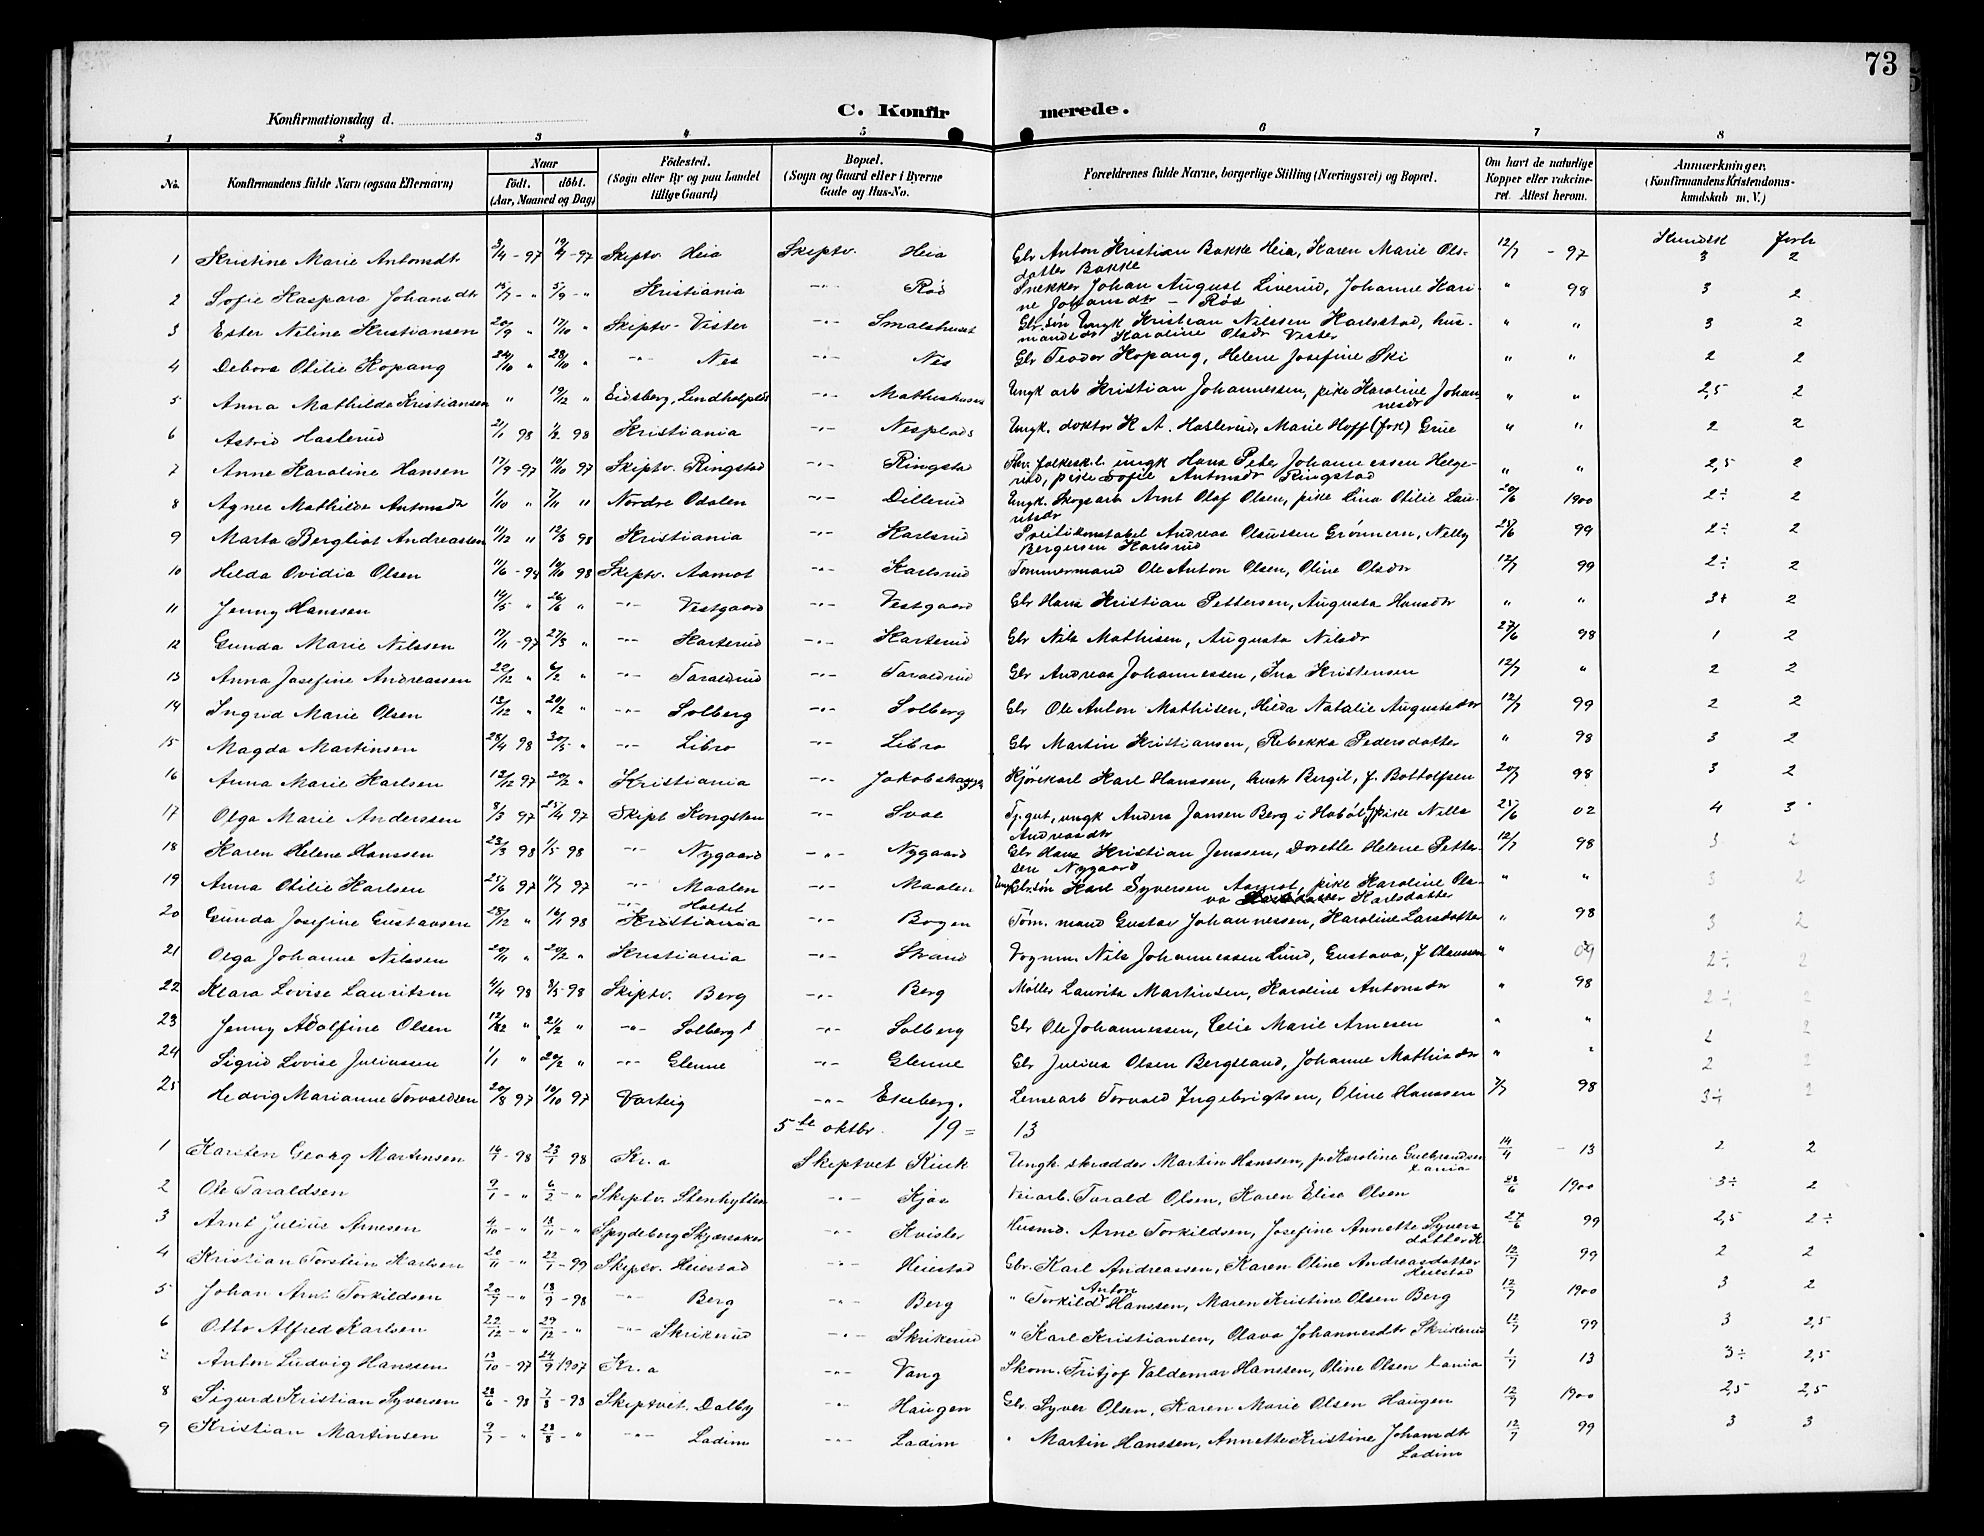 73
C. Konfirmerede.
Konfirmationsdag d.
1 2 3 4 5 6 7 8
No. Konfirmandens fulde Navn (ogsaa Efternavn) Naar født. døbt. (Aar, Maaned og Dag) Fødested. (Sogn eller By og paa Landet tillige Gaard) Bopæl. (Sogn og Gaard eller i Byerne Gade og Hus-No. Forældrenes fulde Navne, borgerlige Stilling (Næringsvei) og Bopæl. Om havt de naturlige Kopper eller vakcineret. Attest herom. Anmærkninger, (Konfirmandens Kristendomskundskab m. V.)
Kundsk forh
1 Kristine Marie Antonsdtr 3/4 - 97 19/4 - 97 Skiptv. Heia Skiptv. Heia Gbr Anton Kristian Bakke Heia, Karen Marie Ols-datter Bakke 12/7 - 97 3 2
2 Sofie Kaspara Johansdtr 13/7 - " 5/9 - " Kristiania -"- Rød Snekker Johan August Liverud, Johanne Karine Johansdtr - Rød " 98 3 2
3 Ester Neline Kristiansen 20/9 " 17/10 " Skiptv. Vister -"- Smalshuset Gbr.søn Ungk Kristian Nilssen Karlsstad, husmandsdtr Karoline Olsdr Vister " " 3 2
4 Debora Otilie Kopang 24/10 " 28/10 " -"- Nes -"- Nes Gbr Teodor Kopang, Helene Josefine Ski " " 2 2
5 Anna Mathilde Kristiansen " 19/12 " Eidsberg, Lindholpløs -"- Mathishuset Ungk arb Kristian Johannessen, pike Karoline Johannesdr " " 2,5 2
6 Astrid Haslerud 21/1 98 1/2 98 Kristiania -"- Nesplads Ungk. doktor K A. Haslerud, Marie Hoff (frk) Grue " " 2 2
7 Anne Karoline Hansen 17/9 - 97 10/10 97 Skiptv. Ringstad -"- Ringstad folkesk.l. ungk Hans Peter Johannessen Helgerud, pike Sofie Antonsdr Ringstad " " 2,5 2
8 Agnes Mathilde Antonsdr 1/10 " 7/11 " Nordre Odalen -"- Dillerud Ungk. Skogsarb Arnt Olaf Olsen, pike Lina Otilie Lauritsdr 20/6 1900 2÷ 2
9 Marta Bergliot Andreassen 11/12 " 12/3 98 Kristiania -"- Karlsrud Politikonstabel Andreas Olaussen Grønnern, Nelly Bergersen Karlsrud 25/6 99 2÷ 2
10 Hilda Ovidia Olsen 11/6 - 98 10/10 98 Skiptv. Aamot -"- Karlsrud Tømmermand Ole Anton Olsen, Oline Olsdr 12/7 99 2÷ 2
11 Jenny Hanssen 14/5 " 26/6 " -"- Vestgaard -"- Vestgaard Gbr Hans Kristian Pettersen, Augusta Hansdtr " " 3+ 2
12 Gunda Marie Nilssen 17/11 - 97 27/3 " -"- Karterud -"- Karterud Gbr Nils Mathisen, Augusta Nilsdr 27/6 98 1 2
13 Anna Josefine Andreassen 22/12 " 6/2 " -"- Taraldrud -"- Taraldrud Gbr Andreas Johannessen, Ina Kristensen 12/7 " 2 2
14 Ingrid Marie Olsen 12/12 " 20/2 " -"- Solberg -"- Solberg Gbr Ole Anton Mathisen, Hilda Natalie Augustadtr 12/7 99 2 2
15 Magda Martinsen 28/4 98 30/5 " -"- Libro -"- Libro Gbr Martin Kristiansen, Rebekka Pedersdatter " 98 3 2
16 Anna Marie Karlsen 12/12 97 20/2 " Kristiania -"- Jakobshaugen Kjørekarl Karl Hanssen, Bergit, f. Bottolfsen 20/7 98 3 2
17 Olga Marie Anderssen 8/3 97 25/4 97 Skipt Kongsten -"- Svae Tj.gut, ungk Anders Jansen Berg i Hobøl, pike Nilla Andreasdtr 25/6 02 4 3
18 Karen Helene Hanssen 23/3 98 1/5 98 -"- Nygaard -"- Nygaard Gbr Hans Kristian Jenssen, Dorethe Helene Pettersen Nygaard 12/7 98 3 2
19 Anna Otilie Karlsen 25/6 97 11/7 97 -"- Maalen -"- Maalen Ungk gbr.søn Karl Syversen Aamot, pike Karoline Olava Karlsdatter " " 3 2
20 Gunda Josefine Gustavsen 28/12 " 16/1 98 -"- Holtet Kristiania -"- Bogen Tøm. mand Gustav Johannessen, Karoline Larsdatter " 98 3 2
21 Olga Johanne Nilssen 20/11 " 20/2 " Kristiania -"- Strand Vognm. Nils Johannessen Lund, Gustava, f Olaussen " 09 2÷ 2
22 Klara Lovise Lauritsen 4/4 98 8/5 98 Skiptv. Berg -"- Berg Møller Laurits Martinsen, Karoline Antonsdtr " 98 2÷ 2
23 Jenny Adolfine Olsen 12/12 " 21/2 " -"- Solberg -"- Solberg Gbr Ole Johannessen, Celie Marie Arnesen " " 2
24 Sigrid Lovise Juliussen 1/1 " 20/2 " -"- Glenne -"- Glenne Gbr Julius Olsen Bergsland, Johanne Mathisdr " " 2 2
25 Hedvig Marianne Torvaldsen 20/8 97 10/10 97 Varteig -"- Ekeberg. Lensearb Torvald Ingebrigtsen, Oline Hanssen 7/7 98 3÷ 2
5te oktbr. 19=13
1 Karsten Georg Martinsen 14/7 - 98 23/7 98 Kr.a Skiptvet Kirk Ungk. skrædder Martin Hanssen, p. Karoline Gulbrandsen 14/4 - 13 2 2
2 Ole Taraldsen 9/1 - " 6/2 - " Skiptv. Stenhytten -"- Kjos Veiarb. Tarald Olsen, Karen Elisa Olsen 28/6 1900 3÷ 2
3 Arnt Julius Arnesen 4/10 - " 13/11 - " Spydeberg Skjærsaker -"- Kvisler Husmd. Arne Torkildsen, Josefine Annette Syversdatter K. 27/6 99 2,5 2÷
4 Kristian Torstein Karlsen 20/11 - " 22/1 - 99 Skiptv. Heiestad -"- Heiestad Gbr. Karl Andreassen, Karen Oline Andreasdatter Heiestad 12/7 99 2 2
5 Johan Arnt Torkildsen 20/7 - " 18/9 - 98 -"- Berg -"- Berg " Torkild Anton Hanssen, Maren Kristine Olsen Berg 12/7 1900 3 2
6 Otto Alfred Karlsen 22/12 - " 29/12 - " -"- Skrikerud -"- Skrikerud " Karl Kristiansen, Olava Johannesdtr Skrikerud 12/7 99 3 2,5
7 Anton Ludvig Hanssen 13/10 - 97 24/9 1907 Kr.a -"- Vang Skom. Fritjof Valdemar Hanssen, Oline Olsen 1/7 13 3÷ 2,5
8 Sigurd Kristian Syversen 28/6 - 98 7/8 - 98 Skiptvet. Dalby -"- Haugen Gbr. Syver Olsen, Karen Marie Olsen Haugen 12/7 1900 2,5 2,5
9 Kristian Martinsen 9/7 - " 28/8 - " -"- Ladim -"- Ladim " Martin Hanssen, Annette Kristine Johansdtr Ladim 12/7 99 3 3